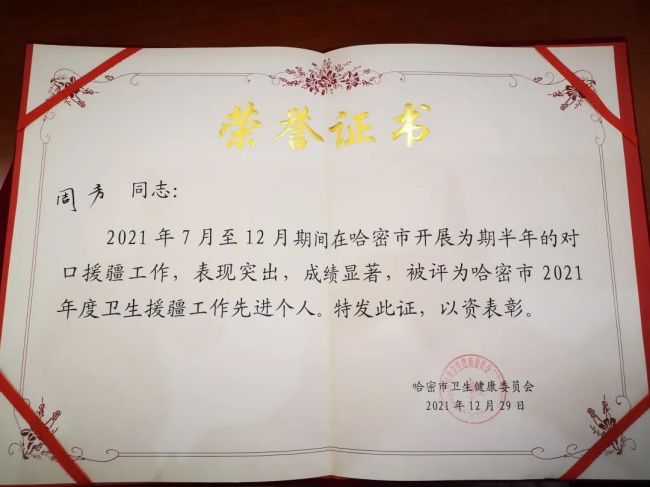 荣誉证书
周芳 同志：
2021年7月至12月期间在哈密市开展为期半年的对
口援疆工作，表现突出，成绩显著，被评为哈密市2021
年度卫生援疆工作先进个人。特发此证，以资表彰。
哈密市卫生健康委员会
2021年12月29日